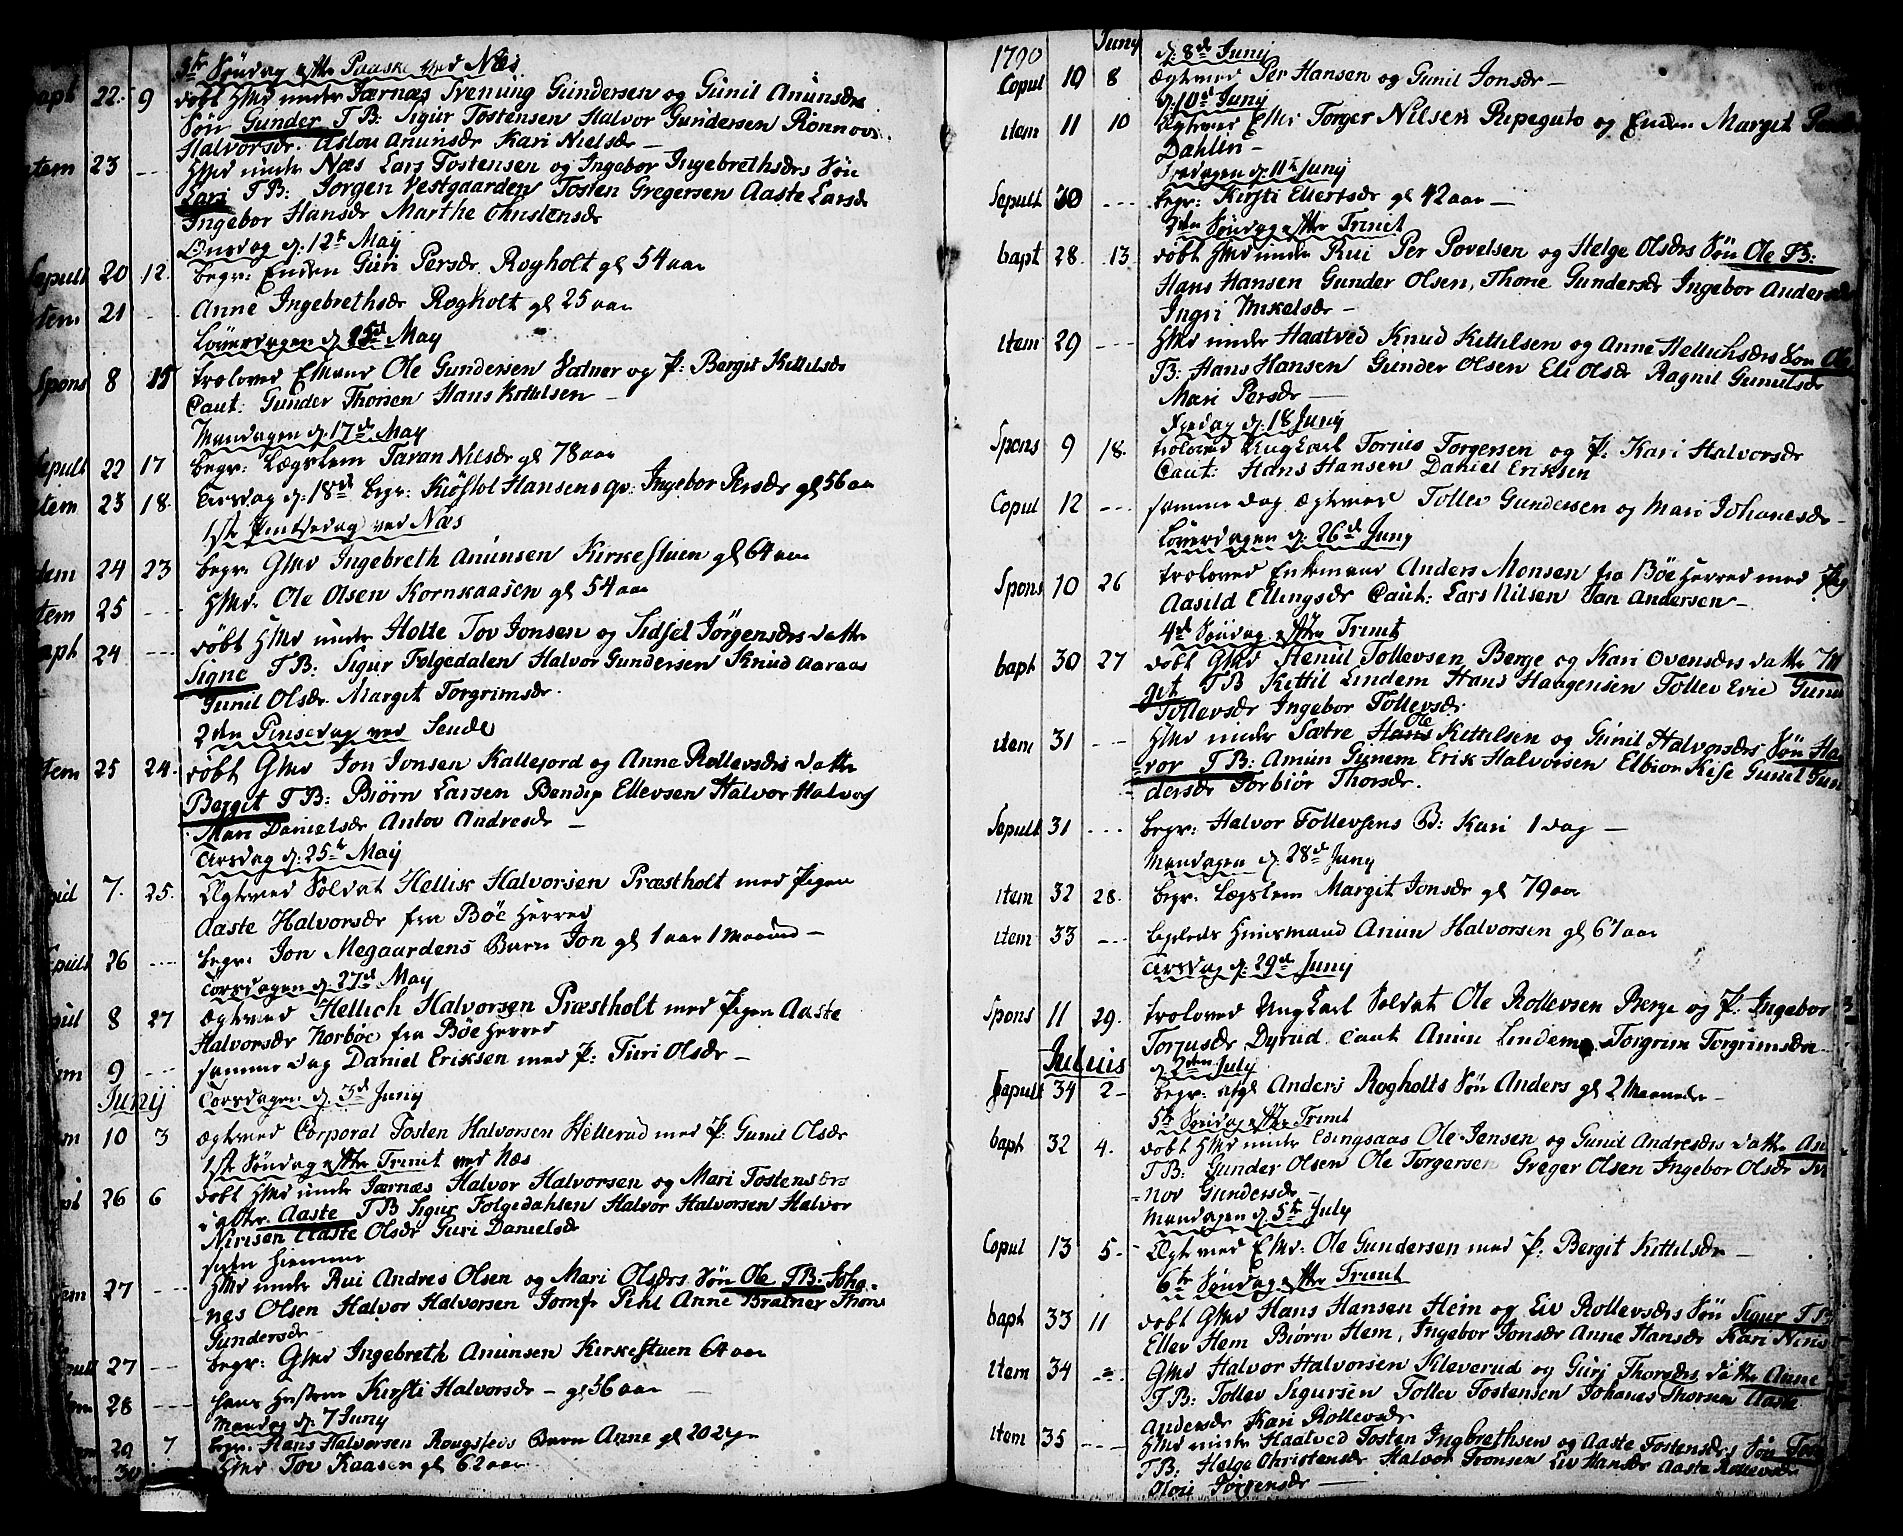 5te Søndag efter Paaske ved Næs
bapt 22. 9 døbt GMd under Jærnæs Svening Gundersen og Gunil Anunsdrs
Søn Gunder T B: Sigur Tostensen Halvor Gundersen Rønnov
Halvorsdr. Aslou Anunsdr Kari Nielsdr –
item 23 --- GMd under Næs Lars Tostensen og Ingebor Ingebrethsdrs Søn
Lars T B: Jørgen Vestgaarden Tosten Gregersen Aaste Larsdr
Ingebor Hansdr Marthe Christensdr
Onsdag d. 12te May
Sepult 20 12. begr: Enken Guri Persdr. Rogholt gl 54 aar
item 21 - Anne Ingebrethsdr Rogholt gl 25 aar
Løverdagen d. 15de May
Spons 8 15 troloved Ekmand Ole Gundersen Vatner og P: Bergit Kittilsdr
Caut: Gunder Thorsen Hans Kittelsen –
Mandagen d. 17de May
Sepult 22 17 begr: Lægslem Taran Nilsdr gl 78 aar
item 23 18. Tirsdag d. 18de begr: Kiøstol Hansens qv: Ingebor Persdr gl 56 aar
1ste Pintsedag ved Næs
item 24 23 begr: GMd Ingebreth Anunsen Kirkestuen gl 64 aar
item 25 --- GMd. Ole Olsen Kornkaasen gl 54 aar
bapt 24 --- døbt GMd under Holte Tov Jonsen og Sidsel Jørgensdrs datter
Signe T B: Sigur Følgedalen Halvor Gundersen Knud Aaraas
Gunil Olsdr. Margit Torgrimsdr.
2den Pinsedag ved Sende
item 25 24. døbt GMd Jon Jonsen Kallejord og Anne Rollevsdrs datter
Bergit T B: Biørn Larsen Bendix Ellevsen Halvor Halvors
Mari Danielsdr Antov Andresdr –
Tirsdag d. 25te May
7. 25. Ægtevied Soldat Hellik Halvorsen Præstholt med Pigen
Aaste Halvorsdr fra Bøe Herred
Sepult 26 ---- begr: Jon Megaardens Barn Jon gl 1 aar 1 Maaned –
Torsdagen d. 27de May
8 27 ægtevied Hellich Halvorsen Præstholt med Pigen Aaste
Halvorsdr Norbøe fra Bøe Herred
item 9 --- samme dag Daniel Eriksen med P: Turi Olsdr –
Junij Torsdagen d. 3de Junij
item 10 3 ægtevied Corporal Tosten Halvorsen Hellerud med P: Gunil Olsdr
1ste Søndag efter Trinit ved Næs
bapt 26 6 døbt GMd under Jærnæs Halvor Halvorsen og Mari Tostensdrs
datter Aaste T B Sigur Følgedahlen Halvor Halvorsen Halvor
Nirisen Aaste Olsdr Guri Danielsdr
siden Hiemme
item 27 --- GMd under Rui Andres Olsen og Mari Olsdrs Søn Ole T B: Joha-
nes Olsen Halvor Halvorsen Jomfr Pihl Anne Bratner Thone
Gundersdr
Sepult 27 --- begr: GMd Ingebreth Anunsen Kirkestuen 64 aar
item 28 ---- hans Hustrue Kirsti Halvorsdr – gl 56 aar –
Mandag d. 7 Junij
item 29 7 begr: Hans Halvorsen Rougsteds Barn Anne gl 20 uger
30 GMd Tov Kaasen gl 62 aar
1790 Junij d. 8de Junij
Copul 10 8 Ægtevied Per Hansen og Gunil Jonsdr –
d. 10de Junij
item 11 10 Ægtevied EMd Torger Nilsen Ripeguto og Enken Margit
Dahlen –
Fredagen d. 11te Junij
Sepult 30 --- begr: Kirsti Ellertsdr gl 42 aar –
2den Søndag efter Trinit
bapt 28. 13 døbt GMd under Rui Per Povelsen og Helge Olsdrs Søn Ole T B:
Hans Hansen Gunder Olsen, Thone Gundersdr Ingebor Andersdr
Ingri Mikelsdr –
item 29 --- GMd under Haatved Knud Kittilsen og Anne Hellichsdrs Søn Ole
T B: Hans Hansen Gunder Olsen Eli Olsdr Ragnil Gunulsdr
Mari Persdr –
Fredag d. 18 Junij
Spons 9 18. trolovet Ungkarl Torius Torgersen og P. Kari Halvorsdr
Caut: Hans Hansen Daniel Eriksen
Copul 12 --- samme dag ægtevied Tollev Gundersen og Mari Johanesdr –
Løverdagen d. 26de Junij
Spons 10 26 trolovet Enkemand Anders Monsen fra Bøe Herred med Pig
Aasild Ellingsdr Caut: Lars Nilsen Jan Andersen –
4de Søndag efter Trinit
bapt 30 27 døbt GMd Henul Tollevsen Berge og Kari Ovensdrs datter Mar
git T B Kittil Lindem Hans Haagensen Tollev Evie Gunil
Tollevsdr Ingebor Tollevsdr.
item 31 --- GMd under Sætre Hans Ole Kittilsen og Gunil Halvorsdrs Søn Hal
vor T B: Amun Gunem Erik Halvorsen Elbior Kise Gunil Gun
dersdr Torbiør Thorsdr.
Sepult 31 --- begr: Halvor Tollevsens B: Kari 1 dag –
Mandagen d. 28de Junij
item 32 28. begr: Lægslem Margit Jonsdr gl 79 aar
item 33 --- Huusmand Anun Halvorsen gl 67 aar
Tirsdag d. 29de Junij
Spons 11 29. trolovet Ungkarl Soldat Ole Rollevsen Berge og P. Ingebor
Torjusdr Dyrud. Caut Anun Lindem. Torgrim Torgrimsen –
Julius d. 2den July
Sepult 34 2 – begr: Anders Rogholts Søn Anders gl 2 Maaneder –
5te Søndag efter Trinit
bapt 32 4. døbt GMd under Edingsaas Ole Jensen og Gunil Andresdrs datter
T B: Gunder Olsen Ole Torgersen Greger Olsen Ingebor Olsdr
nov Gundersdr –
Mandagen d. 5te July
Copul 13 5 – Ægtevied EMd: Ole Gundersen med P. Bergit Kittilsdr –
6te Søndag efter Trinit
bapt 33 11 døbt GMd Hans Hansen Heim og Liv Rollevsdrs Søn Sigur T B:
Ellev Hem Biørn Hem, Ingebor Jonsdr Anne Hansdr Kari
item 34 -- GMd Halvor Halvorsen Kleverud og Gurj Thorsdrs datter Anne
T B: Tollev Sigursen Tollev Tostensen Johanes Thorsen Aaste
Andersdr Kari Rollevsdr
item 35 --- GMd under Haatved Tosten Ingbrethsen og Aaste Tostensdrs Søn
T B: Helge Christensdr Halvor Tronsen Liv Hansdr Aaste Rollevsdr
Jørgensdr –